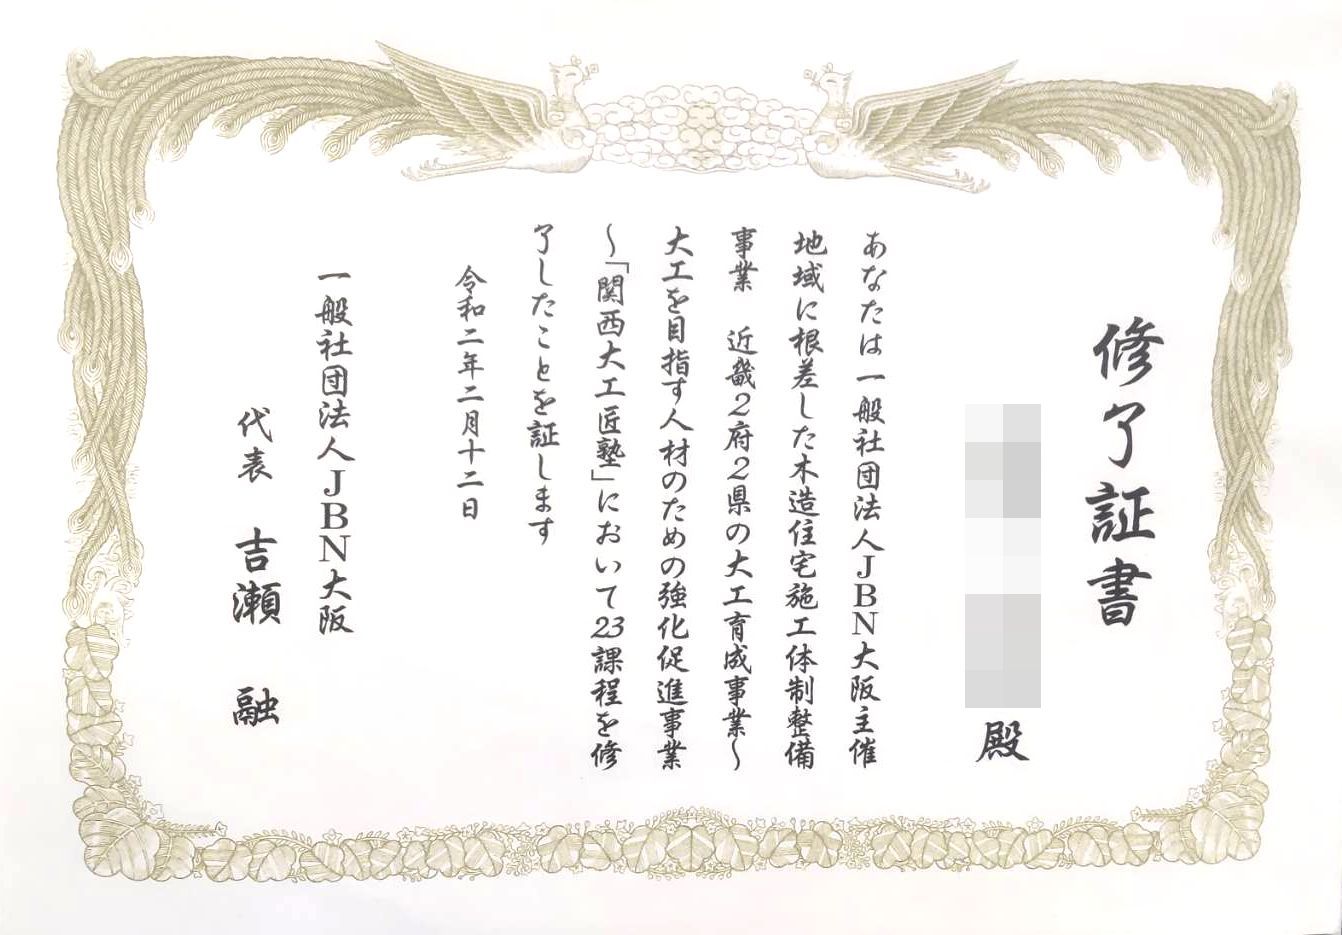 修了証書
殿
あなたは一般社団法人JBN大阪主催
地域に根差した木造住宅施工体制整備
事業 近畿2府2県の大工育成事業〜
大工を目指す人材のための強化促進事業
〜「関西大工匠塾」において23課程を修
了したことを証します
令和二年二月十二日
一般社団法人JBN大阪
代表 吉瀬 融